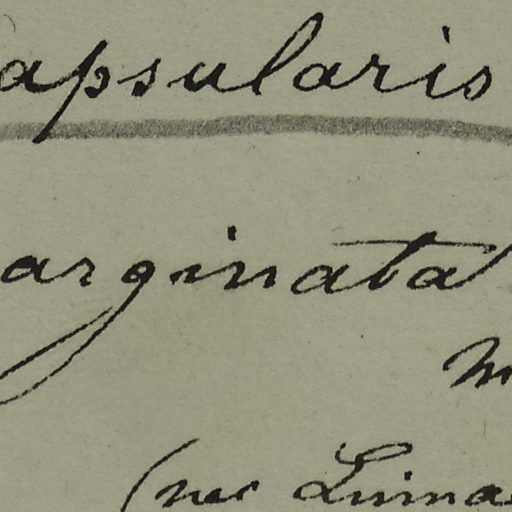 apsularis
arginata
m
(nec Linna